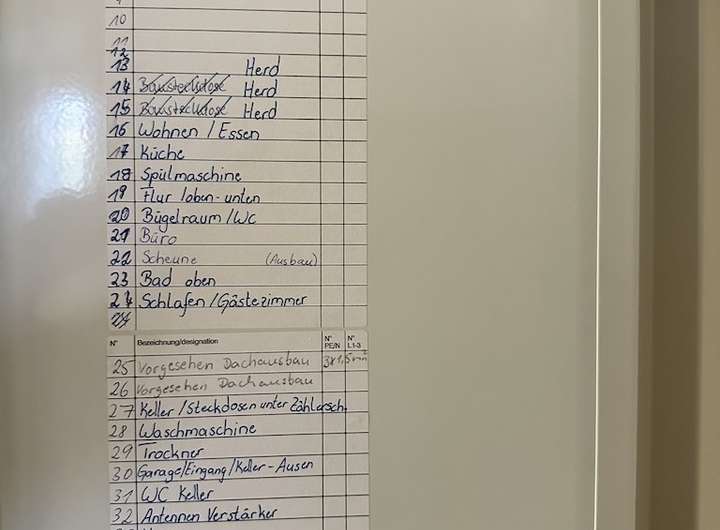 10
11
12
13 Herd
14 Bausteckdose Herd
15 Bausteckdose Herd
16 Wohnen / Essen
17 Küche
18 Spülmaschine
19 Flur /oben-unten
20 Bügelraum /WC
21 Büro
22 Scheune (Ausbau)
23 Bad oben
24 Schlafen / Gästezimmer
N° Bezeichnung/designation N° PE/N N° L1-3
25 Vorgesehen Dachausbau 3x1,5
26 Vorgesehen Dachausbau
27 Keller / Steckdosen unter Zählersch.
28 Waschmaschine
29 Trockner
30 Garage/Eingang/Keller-Ausen
31 WC Keller
32 Antennen Verstärker